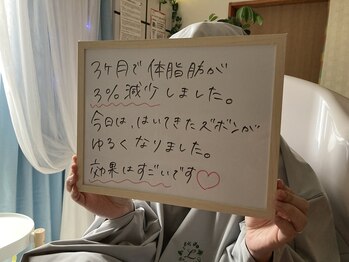 3ヶ月で体脂肪が
3%減少しました。
今日は、はいてきたズボンが
ゆるくなりました。
効果はすごいです♡